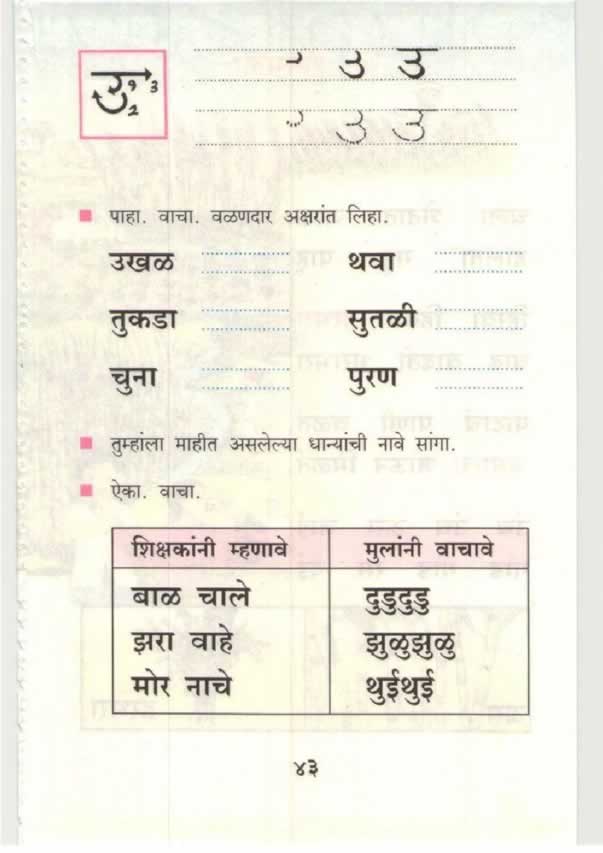 उ १ २ ३
उ उ
उ उ
पाहा. वाचा. वळणदार अक्षरांत लिहा.
उखळ थवा
तुकडा सुतळी
चुना पुरण
तुम्हांला माहीत असलेल्या धान्यांची नावे सांगा.
ऐका. वाचा.
शिक्षकांनी म्हणावे मुलांनी वाचावे
बाळ चाले दुडुदुडु
झरा वाहे झुळुझुळु
मोर नाचे थुईथुई
४३